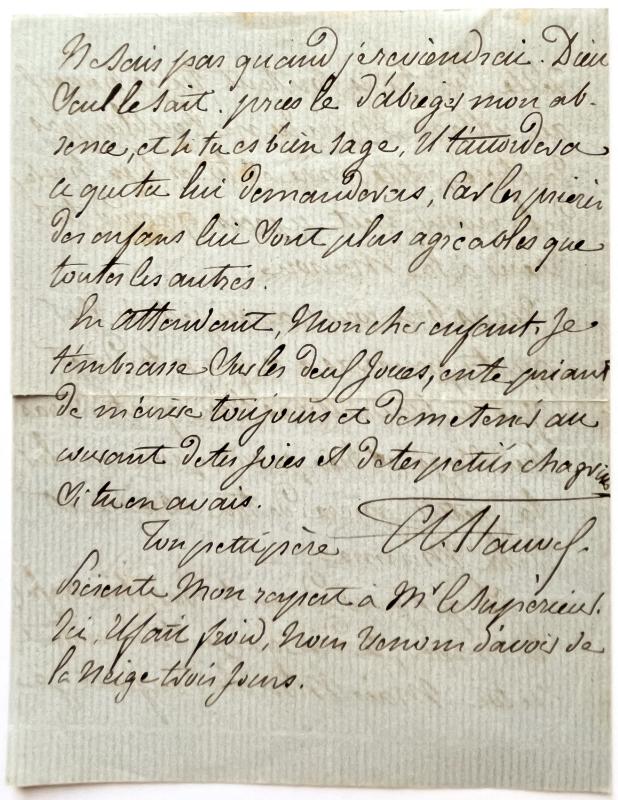 Ne sais pas quand je reviendrai. Dieu
seul le sait. pries le d'abréger mon ab-
sence, et si tu es bien sage, il t'accordera
ce que tu lui demanderas, Car les prières
des enfans lui sont plus agréables que
toutes les autres.
En attendant, Mon cher enfant, Je
t'embrasse sur les deux Joues, en te priant
de m'écrire toujours et de me tenir au
courant de tes Joies et de tes petits chagrins
Si tu en avais.
Ton petit père
Présente Mon respect à Mr le Supérieur.
Ici, il fait froid, Nous venons d'avoir de
la Neige trois Jours.